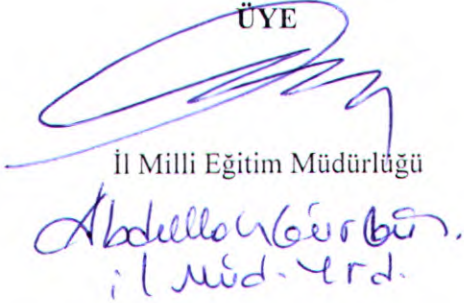 ÜYE
İl Milli Eğitim Müdürlüğü
Abdullah Gürbüz.
il Müd. Yrd.